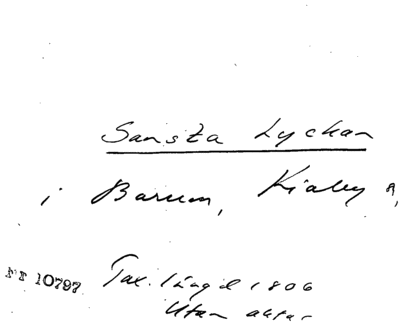 Sansta Lyckan
i Barum, Kiaby s,
NR 10797 Tax. längd 1806
Utan aktar